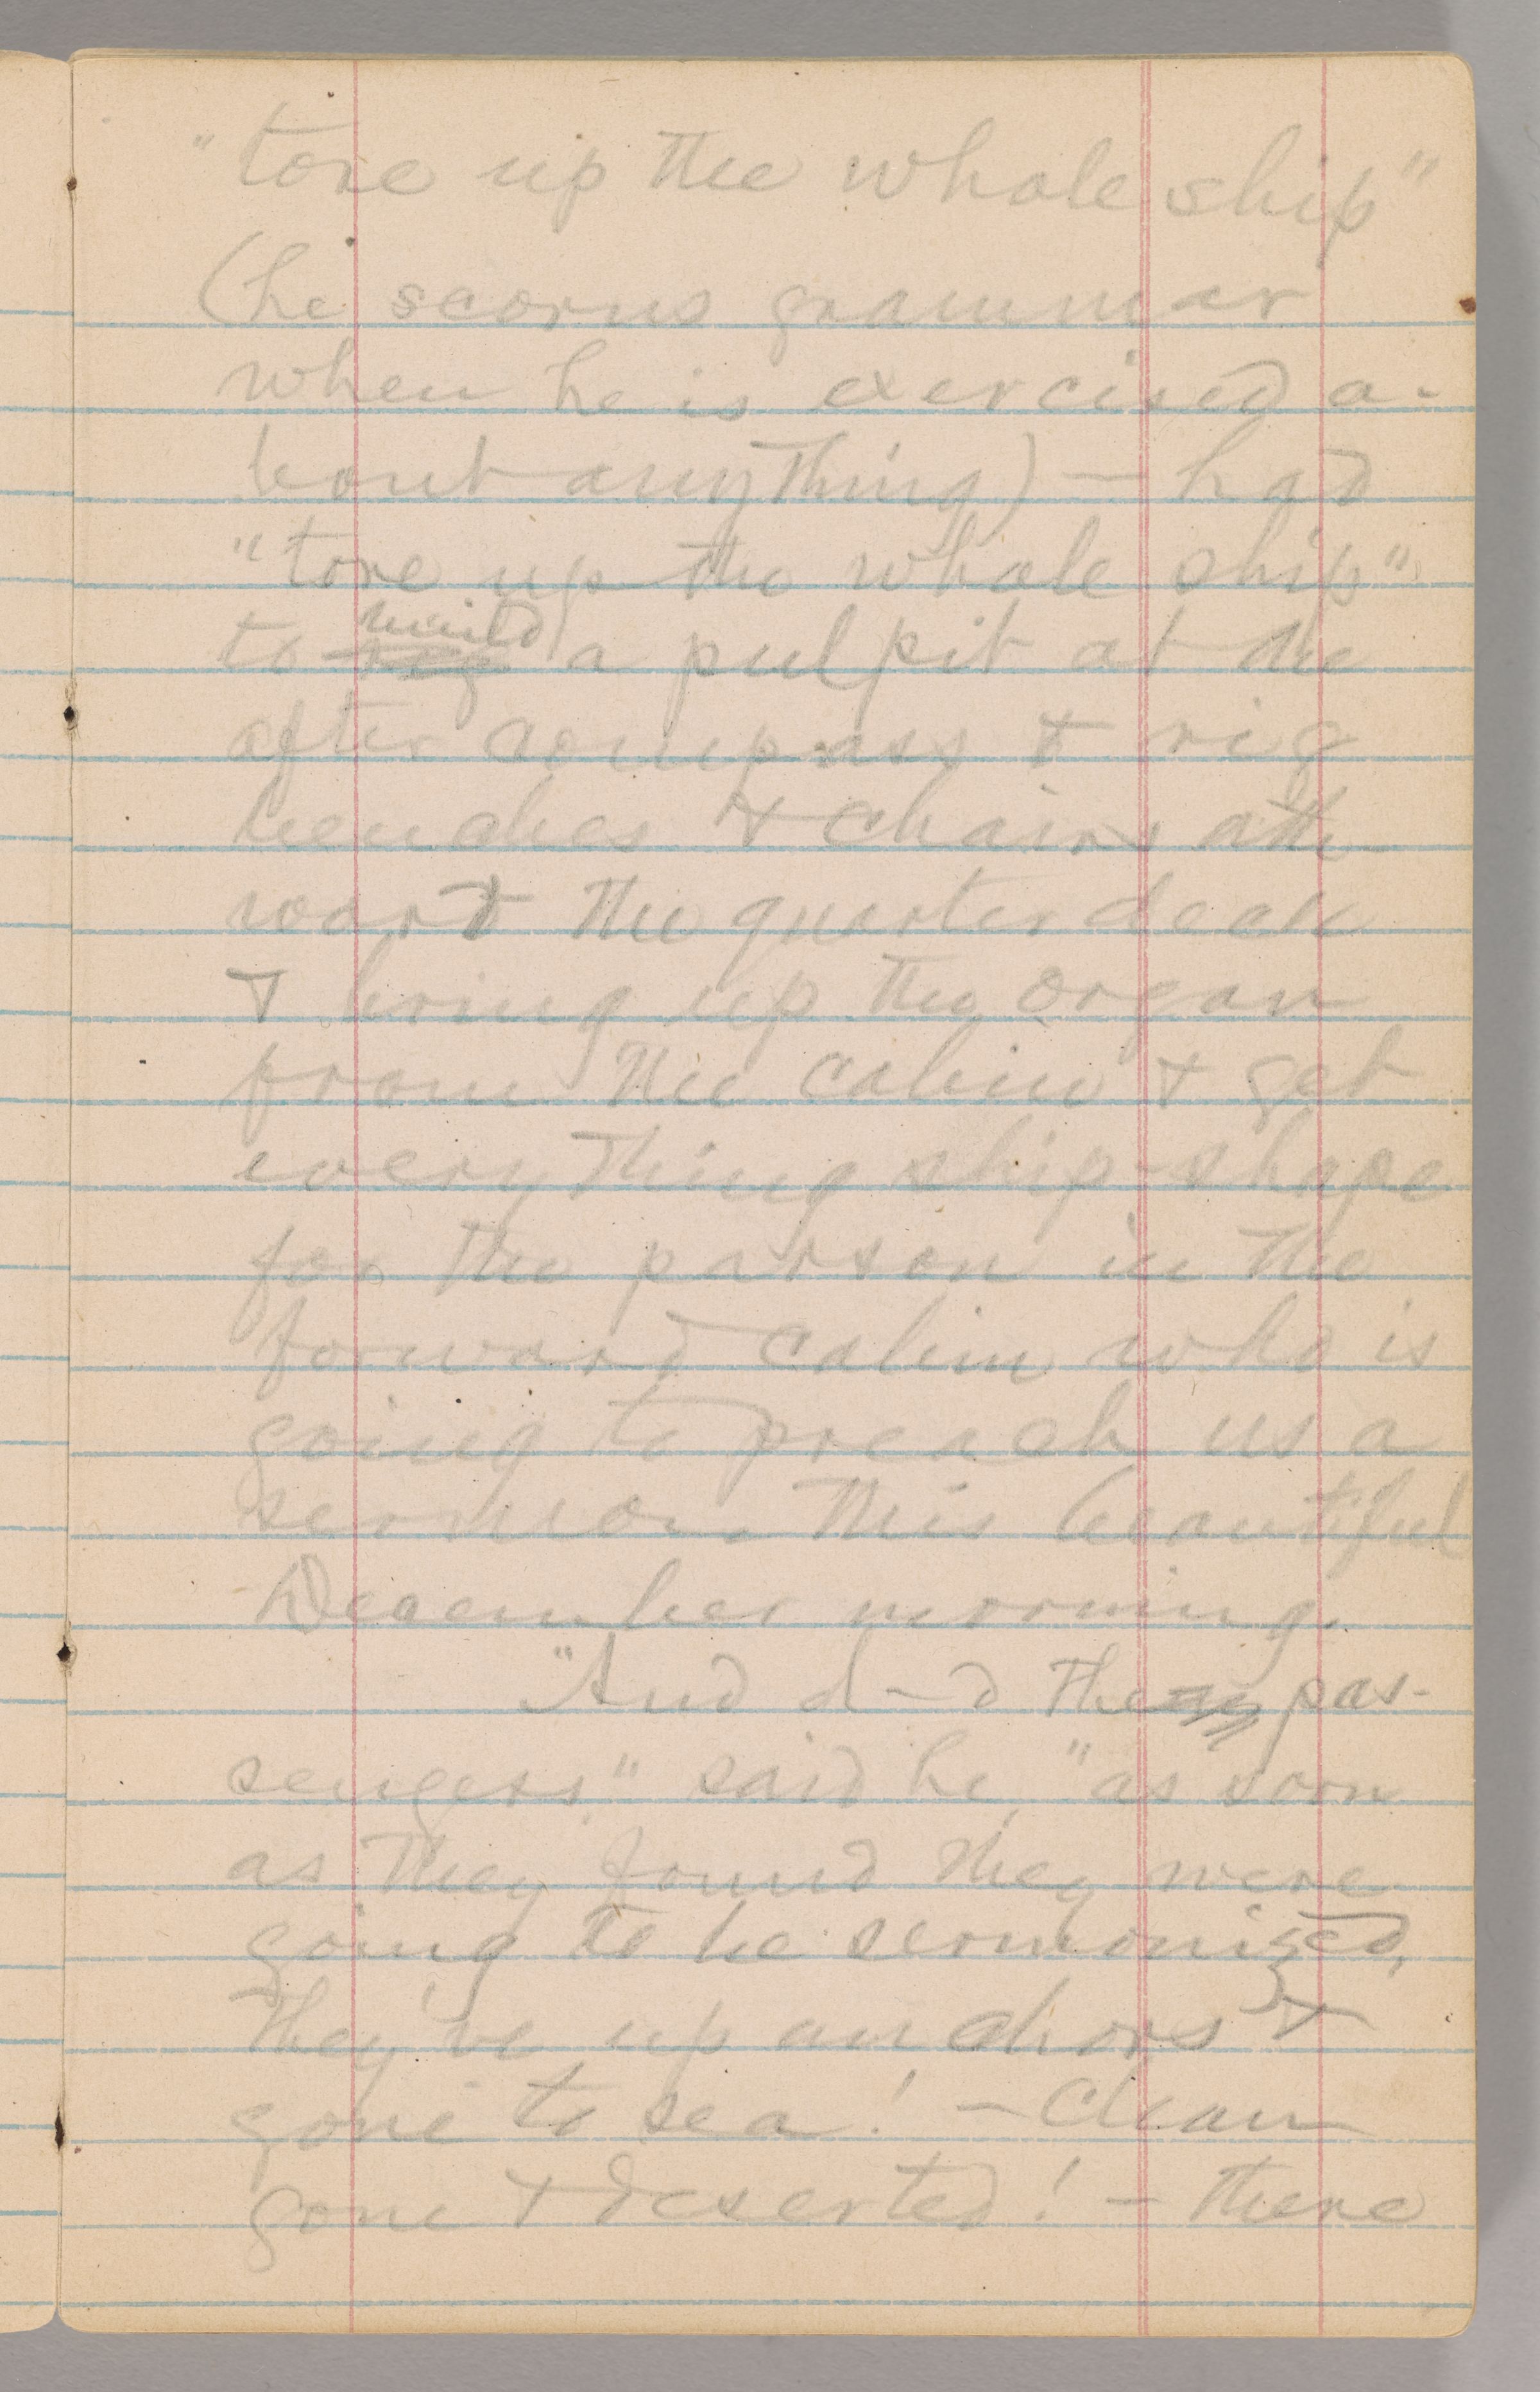 "tore up the whole ship"
(he scorns grammar
when he is exercised a-
bout anything) — had
"tore up the whole ship"
to rig build a pulpit at the
after compass & rig
benches & chairs ath
wart the quarter deck
& bring up the organ
from the cabin & get
everything ship-shape
for the parson in the
forward cabin who is
going to preach us a
sermon this beautiful
December morning.
"And d—d them pas-
sengers" said he, "as soon
as they found they were
going to be sermonised,
they've up anchors &
gone to sea! — Clean
gone & deserted! — there